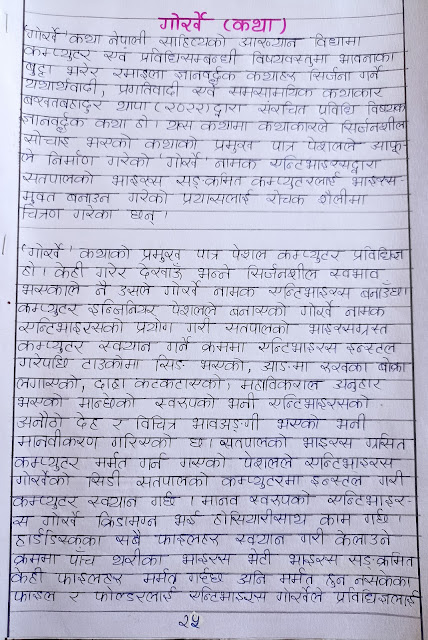 गोर्खे (कथा)
'गोर्खे' कथा नेपाली साहित्यको आख्यान विधामा
कम्प्युटर एवं प्रविधिसम्बन्धी विषयवस्तुमा भावनाका
बुट्टा भरेर रमाइला ज्ञानवर्द्धक कथाहरू सिर्जना गर्ने
यथार्थवादी, प्रगतिवादी एवं समसामयिक कथाकार
बखतबहादुर थापा (२०२२) द्वारा संरचित प्रविधि विषयक
ज्ञानवर्द्धक कथा हो। यस कथामा कथाकारले सिर्जनशील
सोचाइ भएको कथाको प्रमुख पात्र पेशलले आफू-
ले निर्माण गरेको 'गोर्खे' नामक एन्टिभाइरसद्वारा
सतपालको भाइरस सङ्क्रमित कम्प्युटरलाई भाइरस-
मुक्त बनाउन गरेको प्रयासलाई रोचक शैलीमा
चित्रण गरेका छन्।
'गोर्खे' कथाको प्रमुख पात्र पेशल कम्प्युटर प्रविधिज्ञ
हो। केही गरेर देखाऊँ भन्ने सिर्जनशील स्वभाव
भएकाले नै उसले गोर्खे नामक एन्टिभाइरस बनाउँछ।
कम्प्युटर इन्जिनियर पेशलले बनाएको गोर्खे नामक
एन्टिभाइरसको प्रयोग गरी सतपालको भाइरसग्रस्त
कम्प्युटर स्क्यान गर्ने क्रममा एन्टिभाइरस इन्स्टल
गरेपछि टाउकोमा सिङ भएको, आङमा रूखका बोक्रा
लगाएको, दाह्रा कटकटाएको, महाविकराल अनुहार
भएको मान्छेको स्वरूपको भनी एन्टिभाइरसको
अनौठो देह र विचित्र भावभङ्गी भएको भनी
मानवीकरण गरिएको छ। सतपालको भाइरस ग्रसित
कम्प्युटर मर्मत गर्न गएको पेशलले एन्टिभाइरस
गोर्खेको सिडी सतपालको कम्प्युटरमा इन्स्टल गरी
कम्प्युटर स्क्यान गर्छ। मानव स्वरूपको एन्टिभाइर-
स गोर्खे क्रियामग्न भई होसियारीसाथ काम गर्छ।
हार्डडिस्कका सबै फाइलहरू स्क्यान गरी केलाउने
क्रममा पाँच थरीका भाइरस भेटी भाइरस सङ्क्रमित
केही फाइलहरू मर्मत गर्छ अनि मर्मत हुन नसकेका
फाइल र फोल्डरलाई एन्टिभाइरस गोर्खेले प्रविधिज्ञलाई
२५